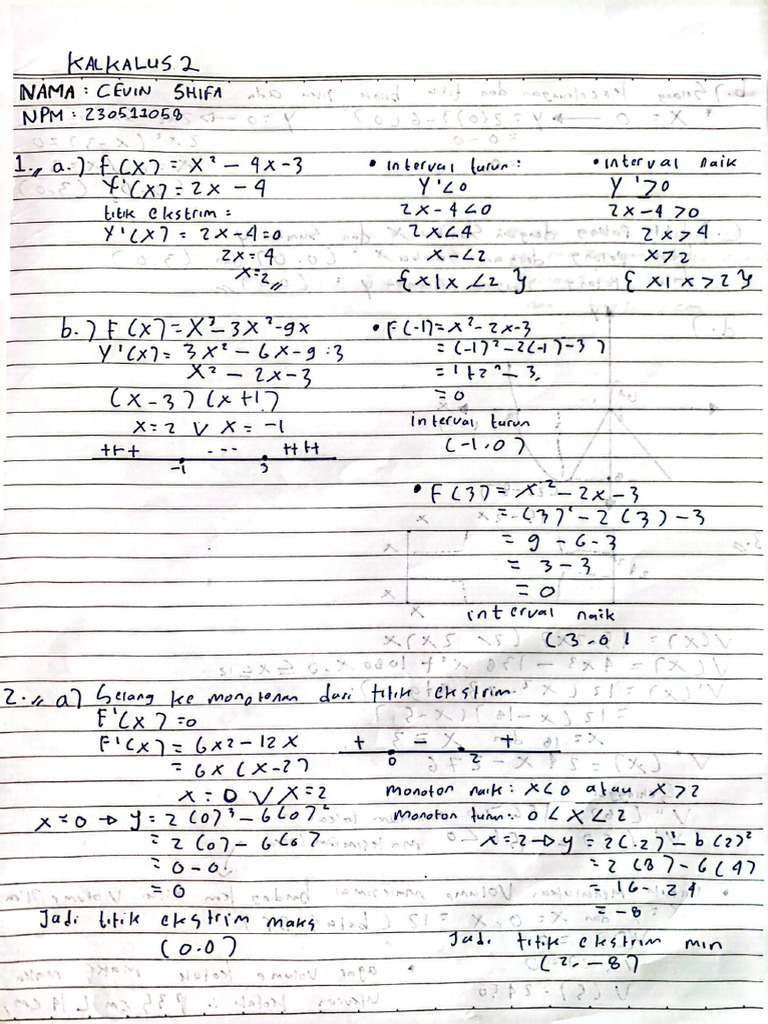 KALKALUS 2
NAMA : CEVIN SHIFA
NPM : 230511058
1. a.) f(x) = x² - 4x - 3
Y'(x) = 2x - 4
titik ekstrim =
Y'(x) = 2x - 4 = 0
2x = 4
x = 2
• interval turun :
Y' < 0
2x - 4 < 0
2x < 4
x - < 2
{x | x < 2}
• interval naik
Y' > 0
2x - 4 > 0
2x > 4
x > 2
{x | x > 2}
b.) F(x) = x³ - 3x² - 9x
Y'(x) = 3x² - 6x - 9 : 3
x² - 2x - 3
(x - 3) (x + 1)
x = 2 V x = -1
+++ --- ++++
-1 3
• F(-1) = x² - 2x - 3
= (-1)² - 2(-1) - 3)
= 1 + 2 - 3
= 0
interval turun
(-1.0)
• F(3) = x² - 2x - 3
= (3)² - 2(3) - 3
= 9 - 6 - 3
= 3 - 3
= 0
interval naik
(3.0)
2. a) Selang ke monotonan dari titik ekstrim
F'(x) = 0
F'(x) = 6x2 - 12x
= 6x (x - 2)
x = 0 V x = 2
+ - +
0 2
monoton naik : x < 0 atau x > 2
monoton turun : 0 < x < 2
x = 0 → y = 2(0)³ - 6(0)²
= 2(0) - 6(0)
= 0 - 0
= 0
Jadi titik ekstrim maks
(0.0)
x = 2 → y = 2(2)³ - 6(2)²
= 2(8) - 6(4)
= 16 - 24
= -8
Jadi titik ekstrim min
(2. -8)